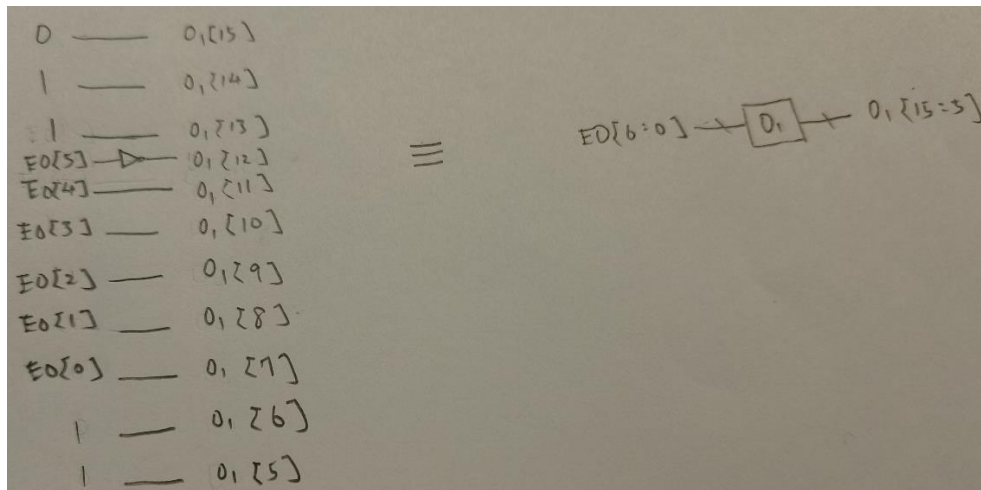 0 — O₁[15]
1 — O₁[14]
1 — O₁[13]
EO[5] — O₁[12]
EO[4] — O₁[11]
EO[3] — O₁[10]
EO[2] — O₁[9]
EO[1] — O₁[8]
EO[0] — O₁[7]
1 — O₁[6]
1 — O₁[5]
≡
EO[6:0] — O₁ — O₁[15:5]